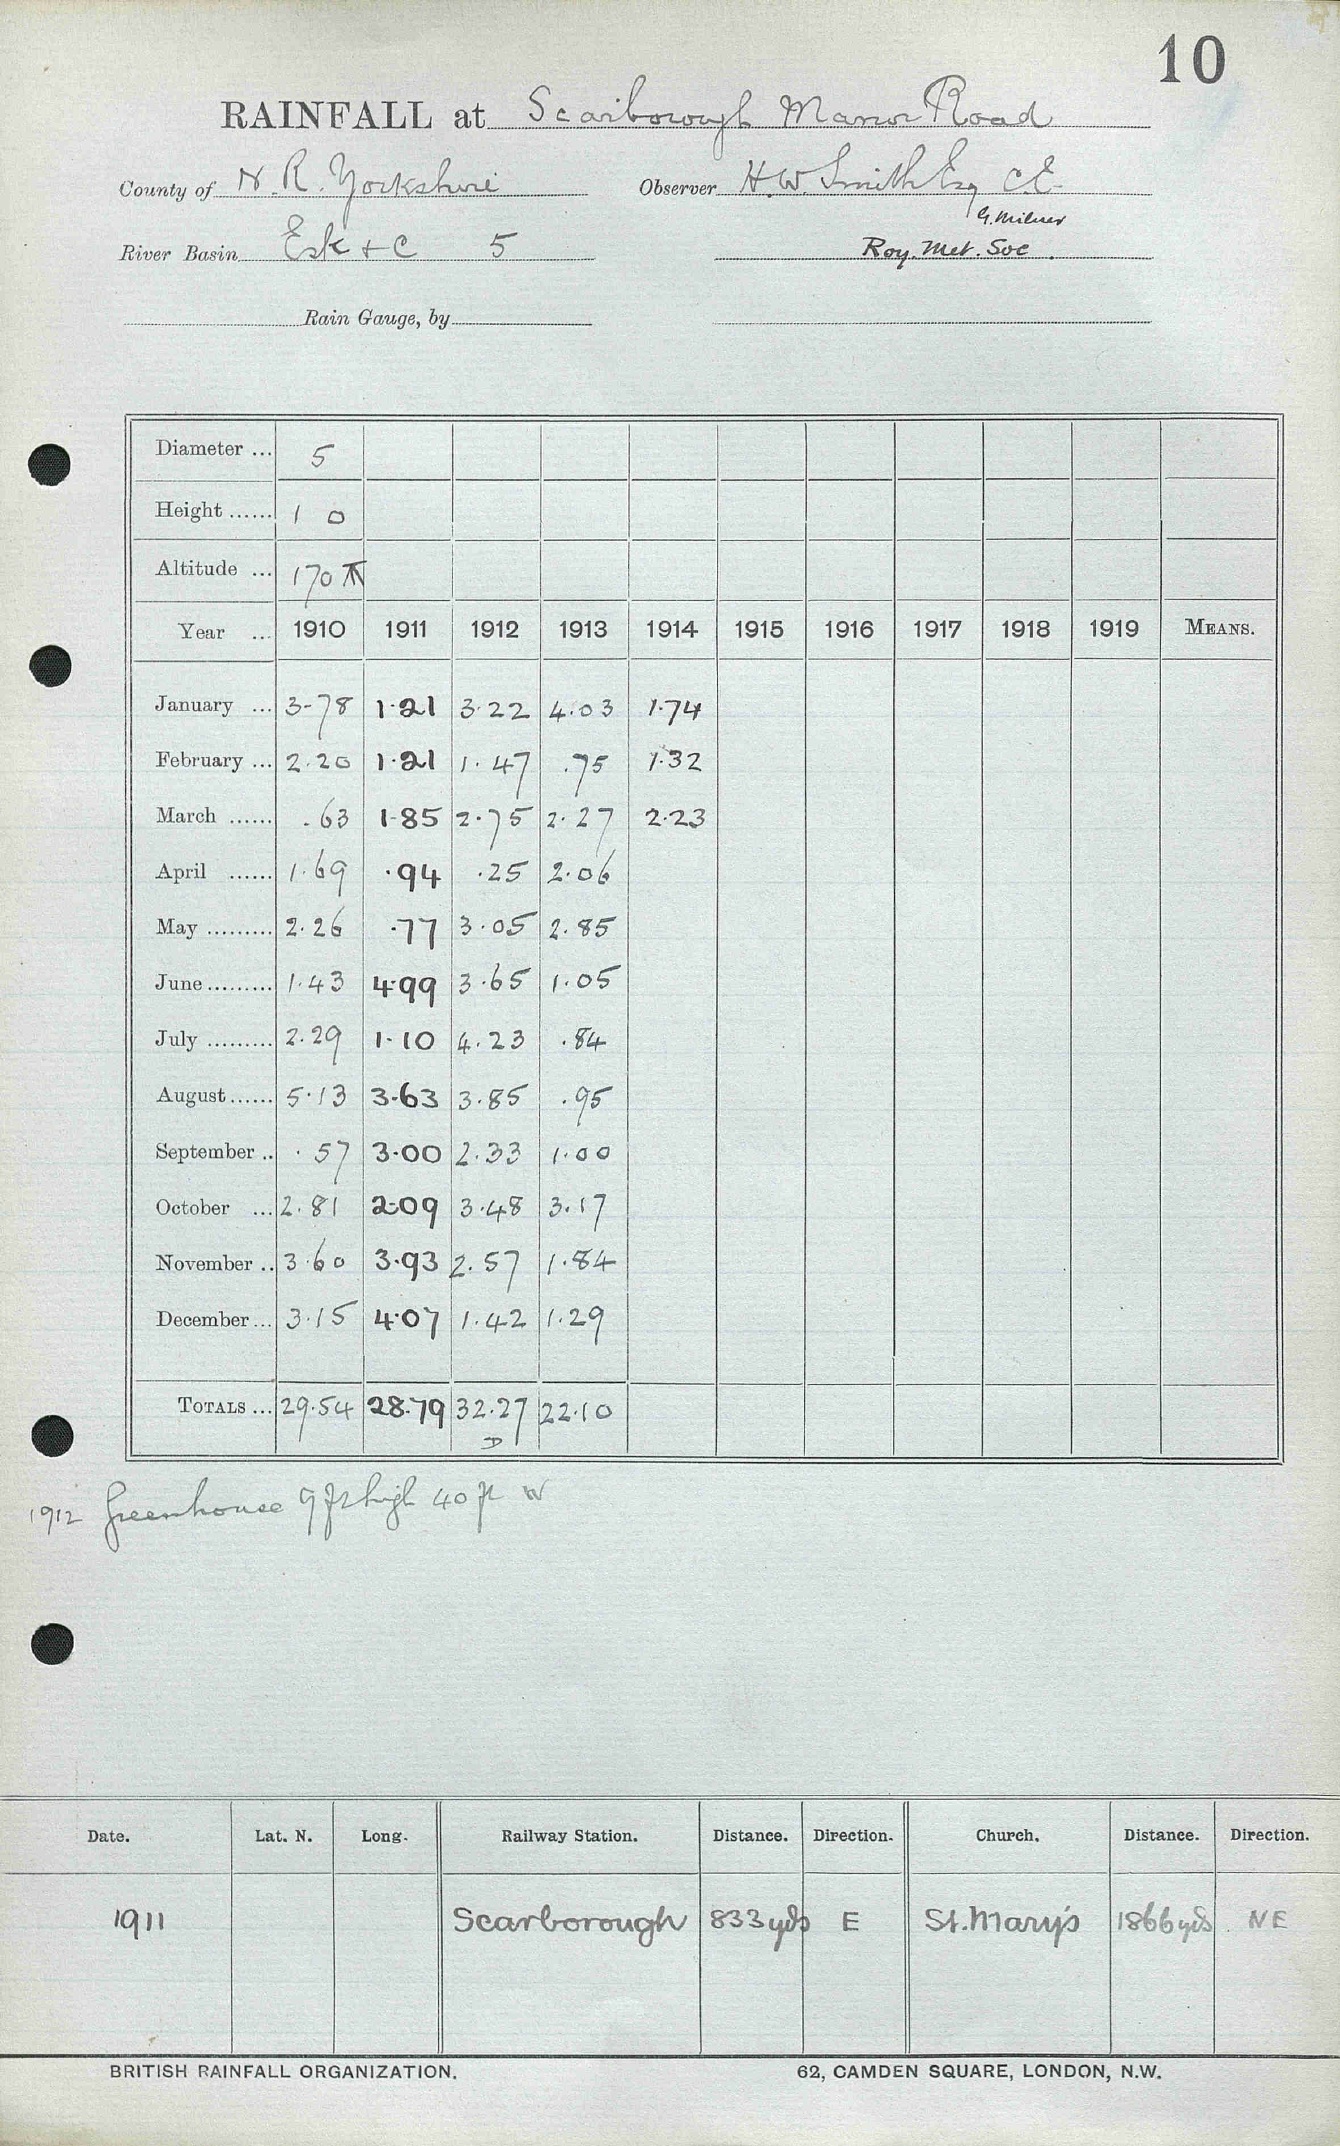 10
RAINFALL at Scarborough Manor Road
County of N.R. Yorkshire Observer H.W. Smith Esq C.E.
G. Milner
River Basin Esk + C 5 Roy. Met. Soc.
Rain Gauge, by
Diameter ... 5
Height ...... 1 0
Altitude ... 170
Year ... 1910 1911 1912 1913 1914 1915 1916 1917 1918 1919 MEANS.
January ... 3.78 1.21 3.22 4.03 1.74
February ... 2.20 1.21 1.47 .75 1.32
March ...... .63 1.85 2.75 2.27 2.23
April ...... 1.69 .94 .25 2.06
May ......... 2.26 .77 3.05 2.85
June ......... 1.43 4.99 3.65 1.05
July ......... 2.29 1.10 4.23 .84
August ...... 5.13 3.63 3.85 .95
September .. .57 3.00 2.33 1.00
October ... 2.81 2.09 3.48 3.17
November .. 3.60 3.93 2.57 1.84
December ... 3.15 4.07 1.42 1.29
TOTALS ... 29.54 28.79 32.27 22.10
D
1912 Greenhouse 9 ft high 40 ft W
Date. Lat. N. Long. Railway Station. Distance. Direction. Church. Distance. Direction.
1911 Scarborough 833 yds E St. Mary's 1866 yds NE
BRITISH RAINFALL ORGANIZATION. 62, CAMDEN SQUARE, LONDON, N.W.